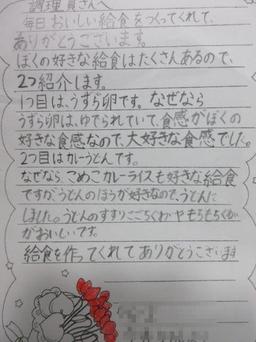 調理員さんへ
毎日おいしい給食をつくってくれて、
ありがとうございます。
ぼくの好きな給食はたくさんあるので、
2つ紹介します。
1つ目は、うずら卵です。なぜなら
うずら卵は、ゆでられていて、食感がぼくの
好きな食感なので、大好きな食感でした。
2つ目はカレーうどんです。
なぜなら、こめこカレーライスも好きな給食
ですが、うどんのほうが好きなので、うどんに
しました。うどんのすすりごこちくわ やもちもちくわ
がおいしいです。
給食を作ってくれてありがとうございます